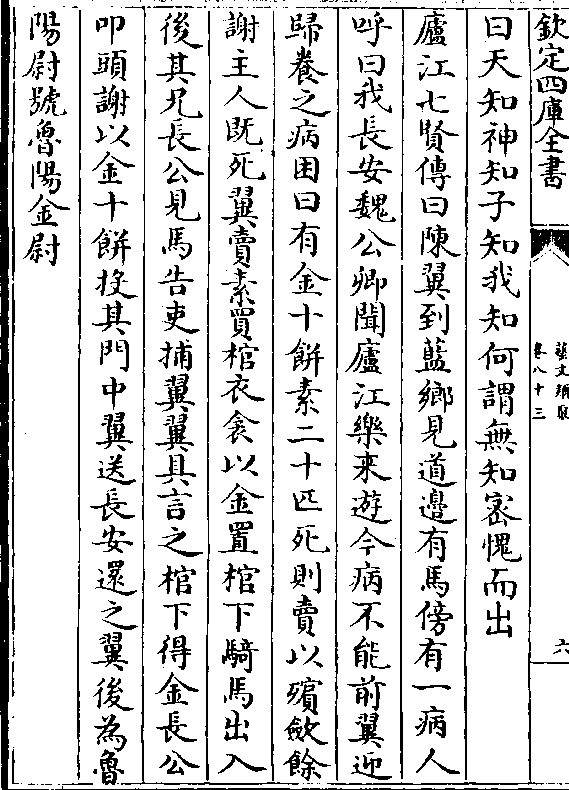 欽定四庫全書
藝文類聚
卷八十三
六
曰天知神知子知我知何謂無知密愧而出
廬江七賢傳曰陳翼到藍鄉見道邊有馬傍有一病人
呼曰我長安魏公卿聞廬江樂来遊今病不能前翼迎
歸養之病困曰有金十餅素二十匹死則賣以殯斂餘
謝主人既死翼賣素買棺衣衾以金置棺下騎馬出入
後其兄長公見馬告吏捕翼翼具言之棺下得金長公
叩頭謝以金十餅投其門中翼送長安還之翼後為魯
陽尉號魯陽金尉